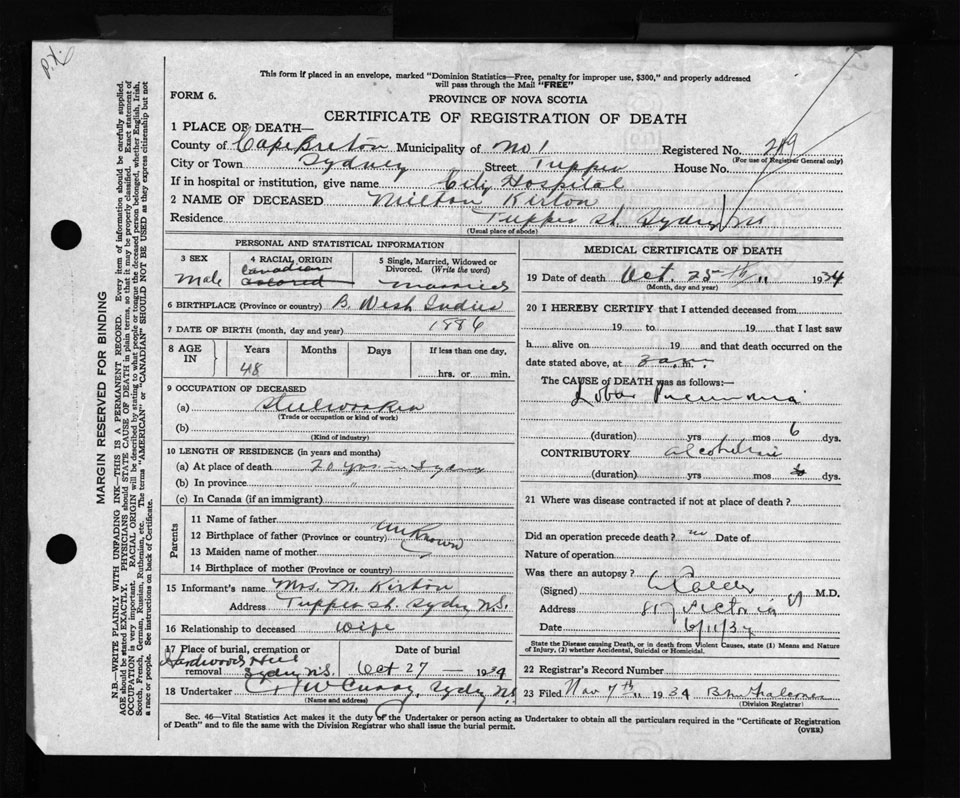 P.X.
This form if placed in an envelope, marked "Dominion Statistics—Free, penalty for improper use, $300," and properly addressed
will pass through the Mail "FREE"
FORM 6.
PROVINCE OF NOVA SCOTIA
CERTIFICATE OF REGISTRATION OF DEATH
1 PLACE OF DEATH—
County of Cape Breton Municipality of No 1 Registered No. 219
(For use of Registrar General only)
City or Town Sydney Street Tupper House No.
If in hospital or institution, give name City Hospital
2 NAME OF DECEASED Milton Kirton
Residence Tupper St. Sydney NS
(Usual place of abode)
PERSONAL AND STATISTICAL INFORMATION
3 SEX 4 RACIAL ORIGIN 5 Single, Married, Widowed or Divorced. (Write the word)
Male Canadian Colored Married
6 BIRTHPLACE (Province or country) B. West Indies
7 DATE OF BIRTH (month, day and year) 1886
8 AGE IN Years Months Days If less than one day,
48 hrs. or min.
9 OCCUPATION OF DECEASED
(a) Steelworker
(Trade or occupation or kind of work)
(b)
(Kind of industry)
10 LENGTH OF RESIDENCE (in years and months)
(a) At place of death 20 yrs in Sydney
(b) In province "
(c) In Canada (if an immigrant)
Parents
11 Name of father
12 Birthplace of father (Province or country) Unknown
13 Maiden name of mother
14 Birthplace of mother (Province or country)
15 Informant's name Mrs. M. Kirton
Address Tupper St. Sydney N.S.
16 Relationship to deceased Wife
17 Place of burial, cremation or removal Date of burial
Hardwood Hill Sydney N.S. Oct 27 — 1934
18 Undertaker Curry, Sydney N.S.
(Name and address)
MEDICAL CERTIFICATE OF DEATH
19 Date of death Oct. 25th " 1934
(Month, day and year)
20 I HEREBY CERTIFY that I attended deceased from
19 to 19 that I last saw
h alive on 19 and that death occurred on the
date stated above, at m.
The CAUSE of DEATH was as follows:—
Lobar Pneumonia
(duration) yrs mos 6 dys.
CONTRIBUTORY
(duration) yrs mos dys.
21 Where was disease contracted if not at place of death?
Did an operation precede death? no Date of
Nature of operation
Was there an autopsy?
(Signed) M.D.
Address 817 Victoria
Date 6/11/34
State the Disease causing Death, or in death from Violent Causes, state (1) Means and Nature of Injury, (2) whether Accidental, Suicidal or Homicidal.
22 Registrar's Record Number
23 Filed Nov 7th " 1934
(Division Registrar)
Sec. 46—Vital Statistics Act makes it the duty of the Undertaker or person acting as Undertaker to obtain all the particulars required in the "Certificate of Registration
of Death" and to file the same with the Division Registrar who shall issue the burial permit. (OVER)
MARGIN RESERVED FOR BINDING
N.B.—WRITE PLAINLY WITH UNFADING INK—THIS IS A PERMANENT RECORD. Every item of information should be carefully supplied.
AGE should be stated EXACTLY. PHYSICIANS should STATE CAUSE OF DEATH in plain terms, so that it may be properly classified. Exact statement of
OCCUPATION is very important. RACIAL ORIGIN will be described by stating to what people or tongue the deceased person belonged, whether English, Irish,
Scotch, French, German, Russian, Ruthenian, etc. The terms "AMERICAN" or "CANADIAN" SHOULD NOT BE USED as they express citizenship but not
a race or people. See instructions on back of Certificate.